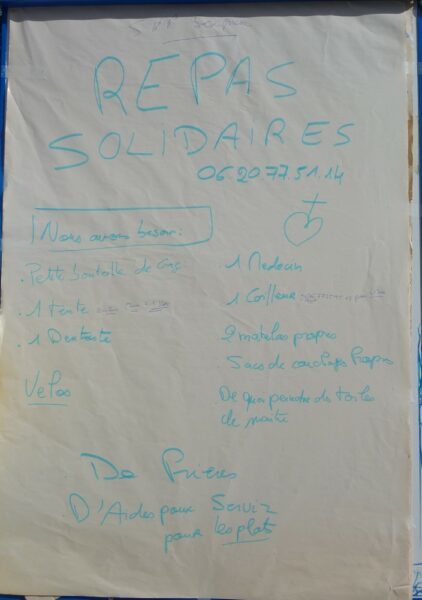 REPAS
SOLIDAIRES
06.20.77.51.14
Nous avons besoin:
. Petite bouteille de Gaz
. 1 tente
. 1 Dentiste
Velos
. 1 Medecin
1 Coiffeur
2 matelas propres
Sacs de couchages Propres
De quoi peindre des toiles
de
De Prières
D'Aides pour Servir
pour les plats